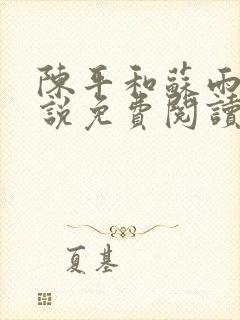 陳平和蘇雨
說免費閱讀
夏基